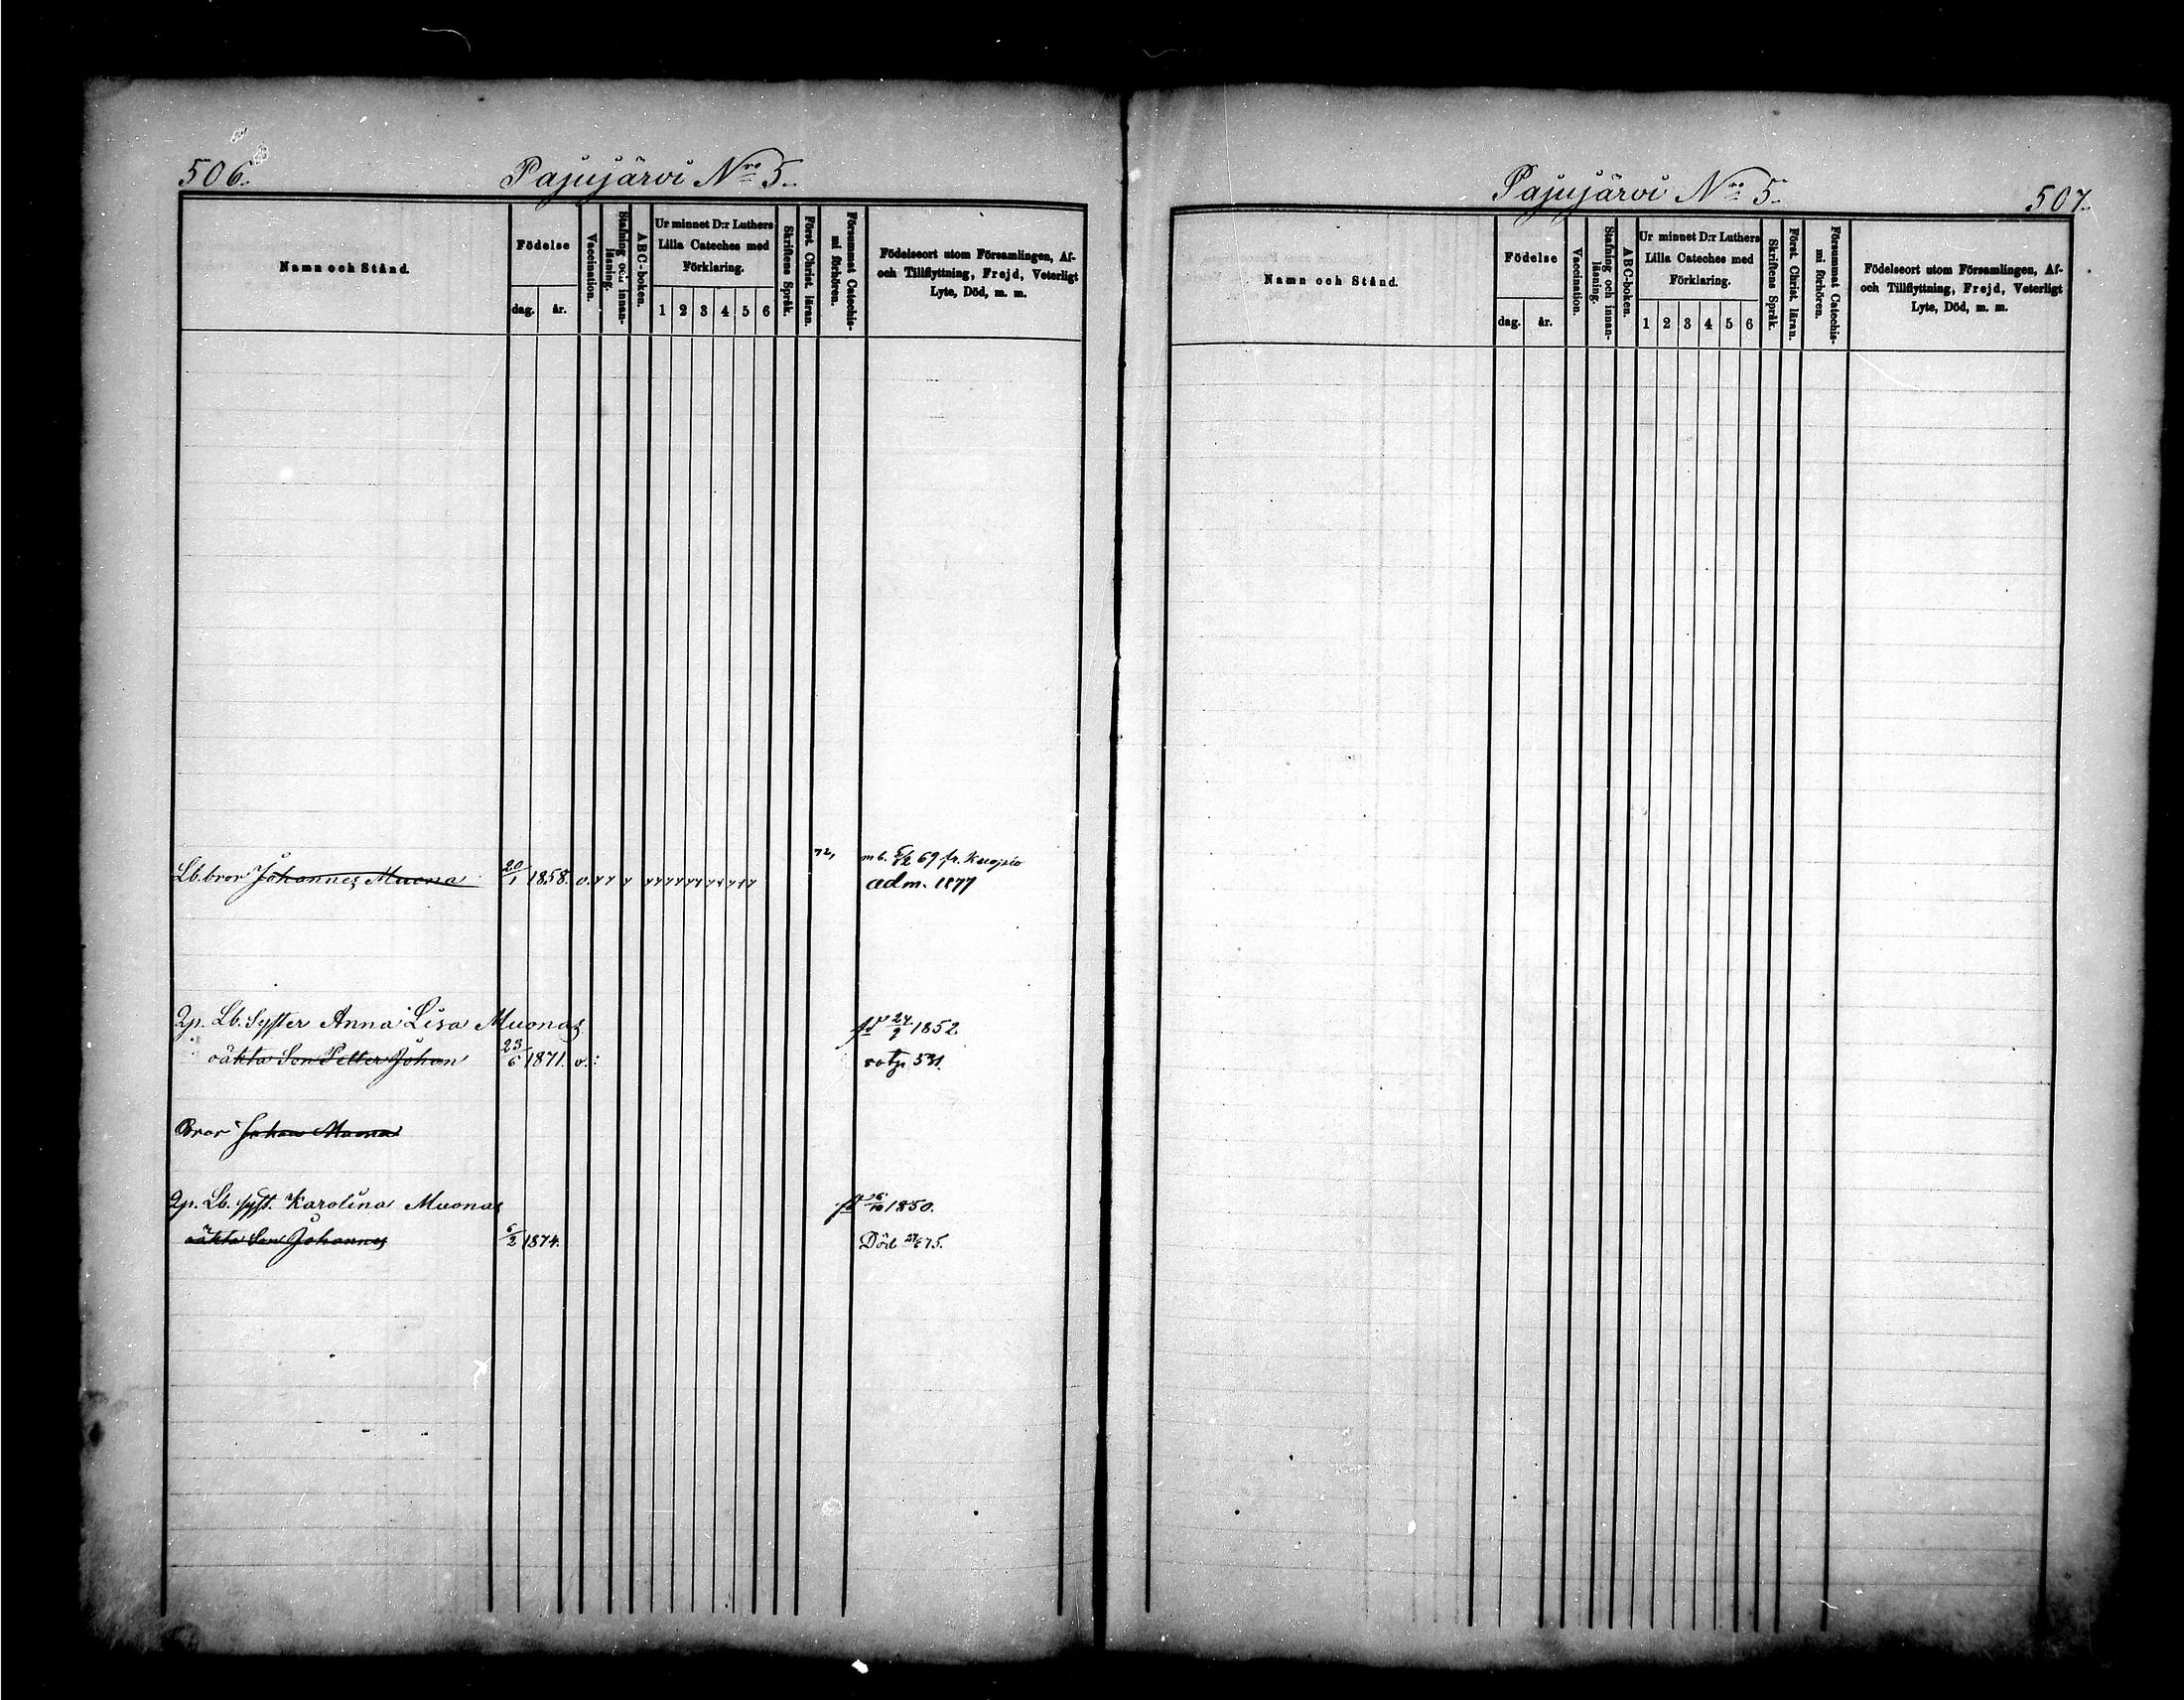 506.
Pajujärvi Nro 5.
Namn och Stånd.
Födelse
dag.
år.
Vaccination.
Stafning och innan-
läsning.
ABC-boken.
Ur minnet D:r Luthers
Lilla Cateches med
Förklaring.
1 2 3 4 5 6
Skriftens Språk.
Först. Christ. läran.
Försummat Catechis-
mi förhören.
Födelseort utom Församlingen, Af-
och Tillflyttning, Frejd, Veterligt
Lyte, Död, m. m.
72, 69 fr. Kuopio
Lb. bror Johannes Muona 20/1 1858. v. adm. 1877
Lb. Syster Anna Lisa Muonas 24/9 1852.
oäkta Son Petter Johan 23/6 1871. v. rotp. 531.
Bror Johan Muona
Lb. syst. Karolina Muonas 1850.
oäkta Son Johannes 6/2 1874. Död 75.
Pajujärvi Nro 5.
507.
Namn och Stånd.
Födelse
dag.
år.
Vaccination.
Stafning och innan-
läsning.
ABC-boken.
Ur minnet D:r Luthers
Lilla Cateches med
Förklaring.
1 2 3 4 5 6
Skriftens Språk.
Först. Christ. läran.
Försummat Catechis-
mi förhören.
Födelseort utom Församlingen, Af-
och Tillflyttning, Frejd, Veterligt
Lyte, Död, m. m.